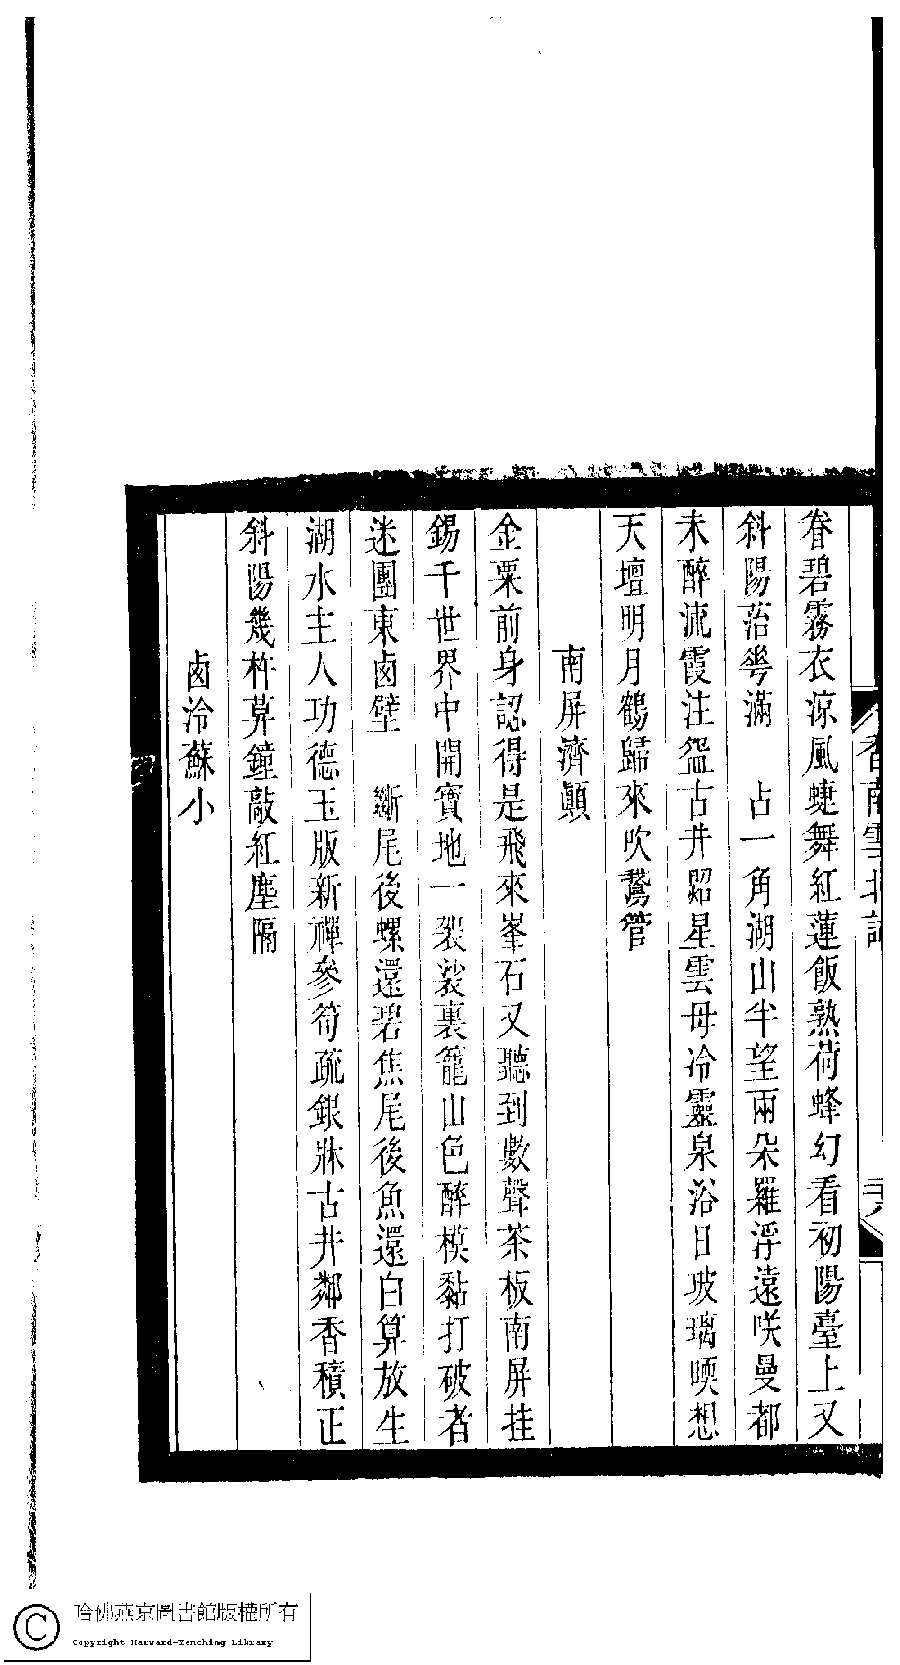 香南雪北詞
眷碧霧衣涼風蜨舞紅蓮飯熟荷蜂幻看初陽臺上又
斜陽萿粤滿　占一角湖山半望兩朵羅浮遠咲曼都
未醉流霞注盌古井炤星雲母冷靈泉浴日玻璃㬉想
天壇明月鶴歸來吹鵞管
南屏濟顛
金粟前身認得是飛來峯石又聽到數聲茶板南屏挂
錫千世界中開寶地一袈裟裏籠山色醉模黏打破者
迷團東鹵壁　斷尾後螺還碧焦尾後魚還白算放生
湖水主人功德玉版新禪參筍疏銀牀古井鄰香積正
斜陽幾杵莫鐘敲紅塵隔
鹵泠蘇小
哈佛燕京圖書館版權所有
Copyright Harvard-Yenching Library